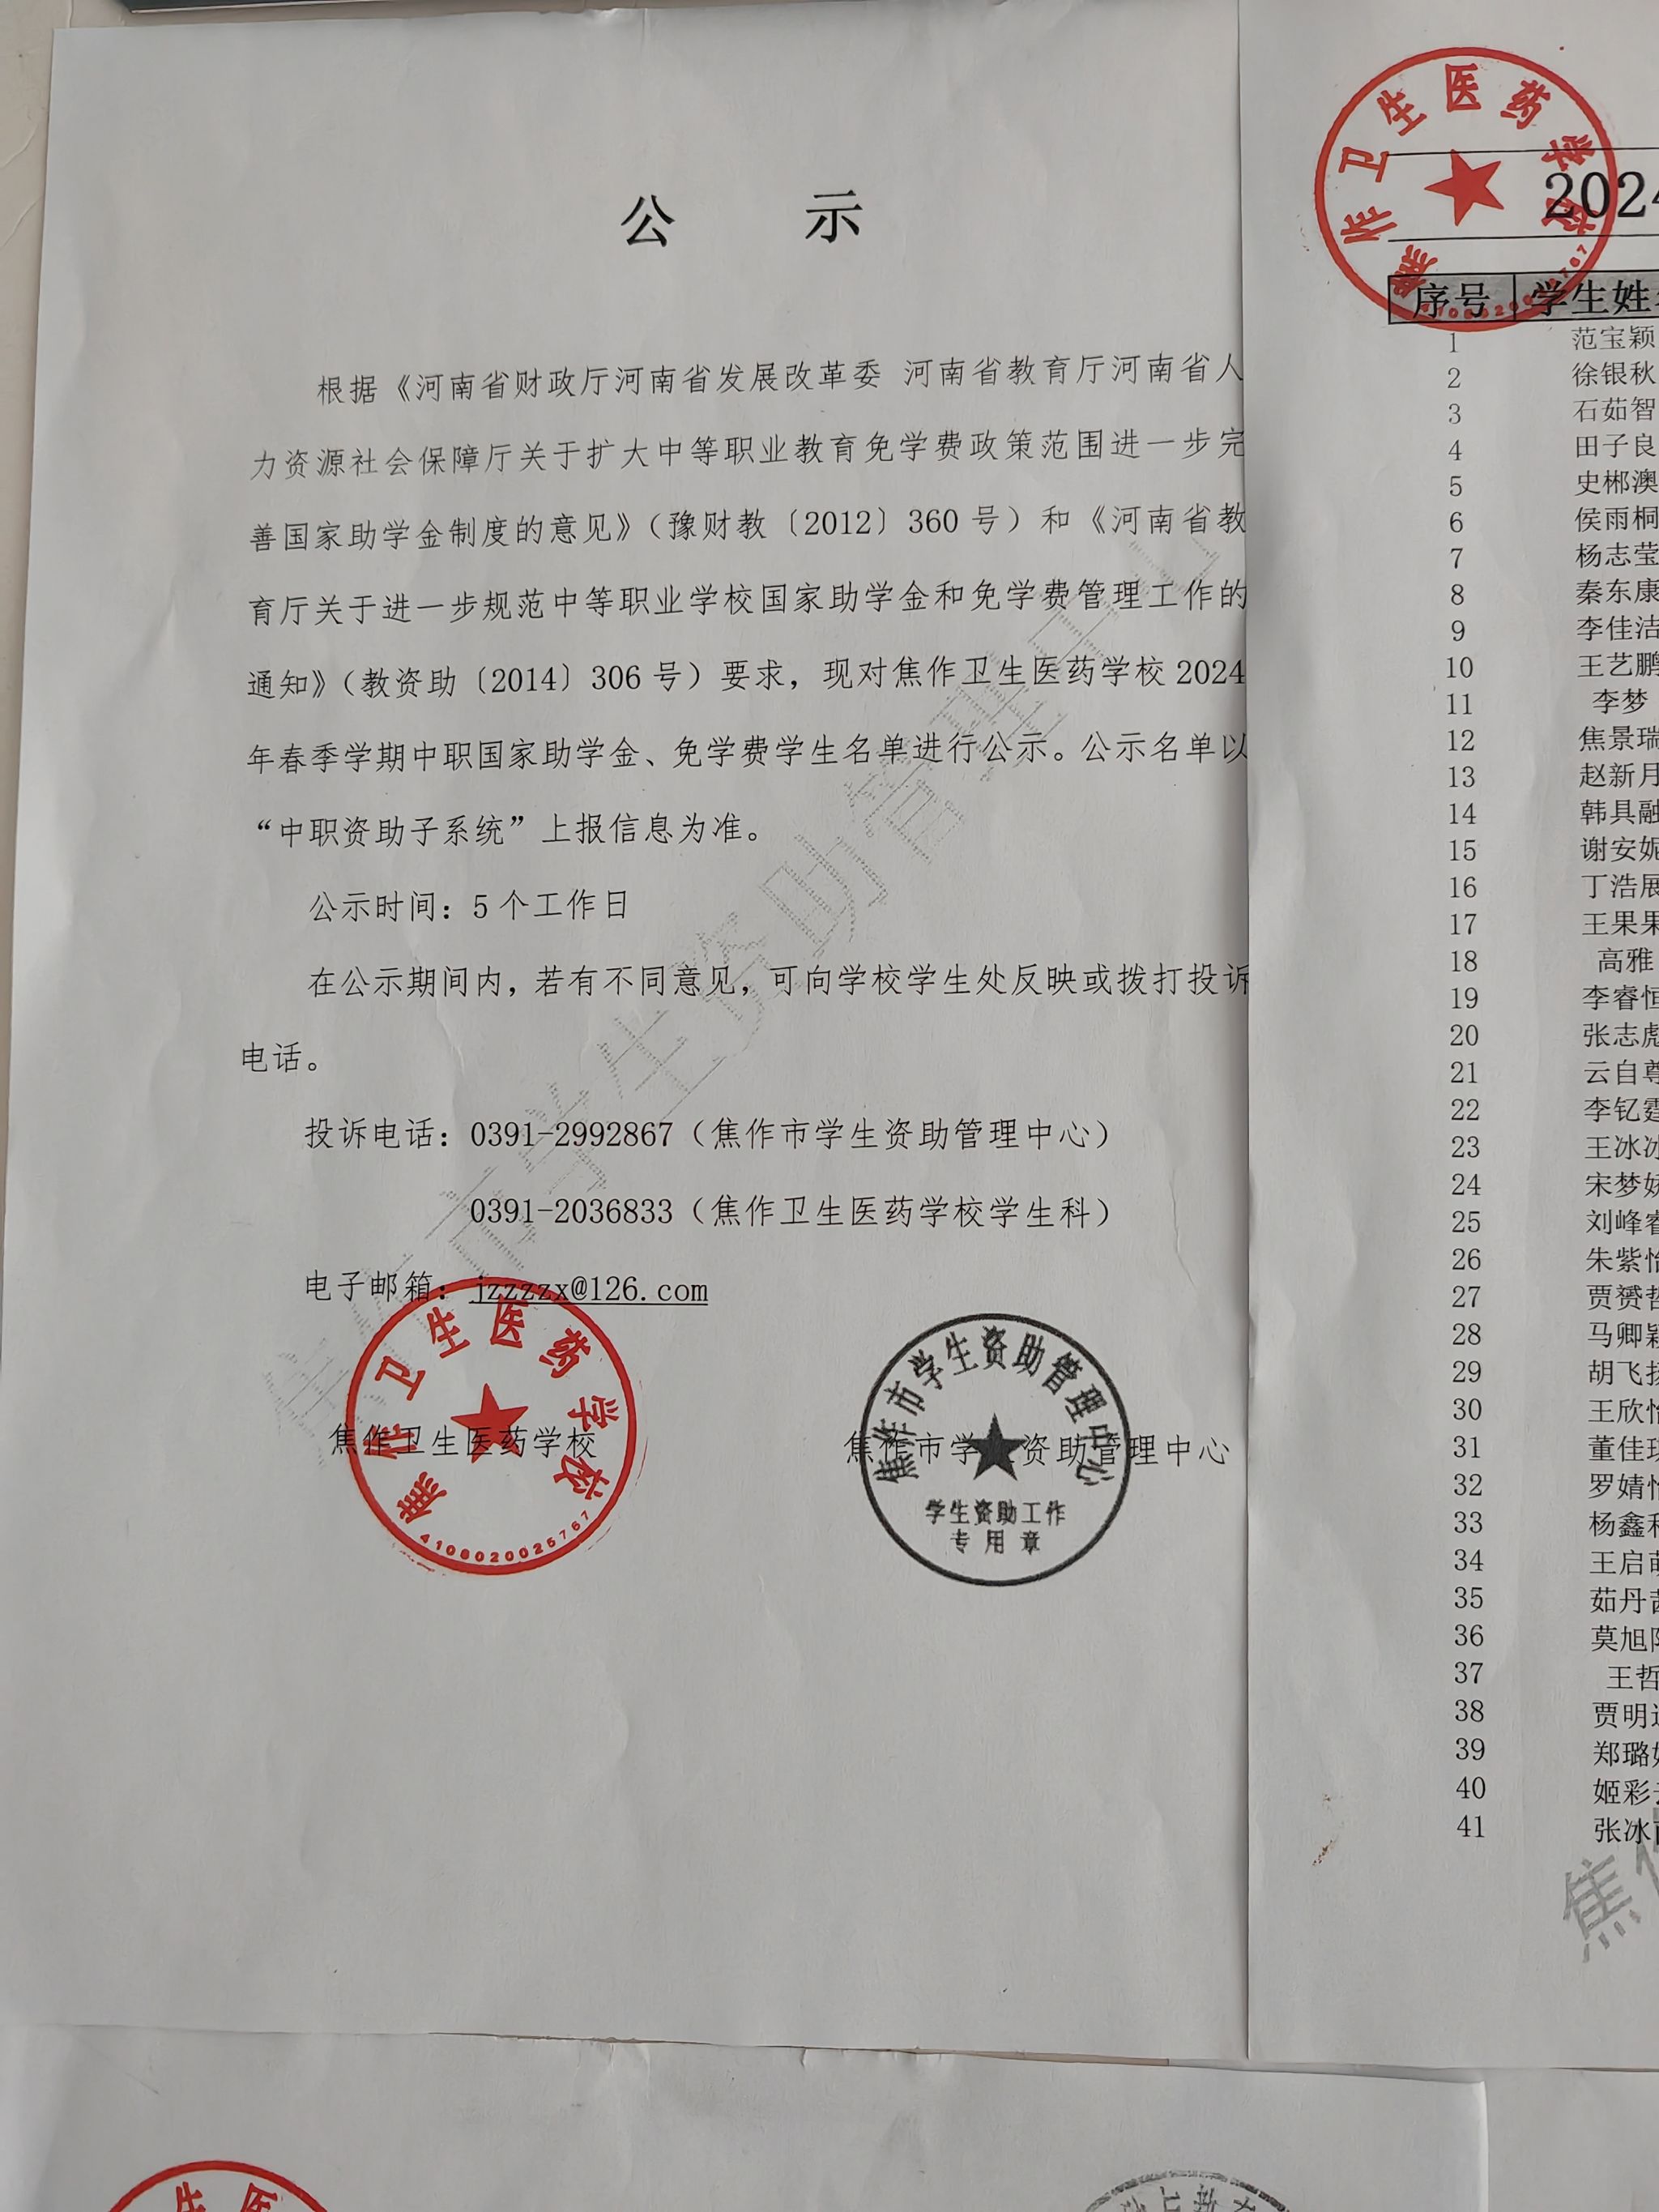 公 示
根据《河南省财政厅河南省发展改革委 河南省教育厅河南省人
力资源社会保障厅关于扩大中等职业教育免学费政策范围进一步完
善国家助学金制度的意见》（豫财教〔2012〕360 号）和《河南省教
育厅关于进一步规范中等职业学校国家助学金和免学费管理工作的
通知》（教资助〔2014〕306 号）要求，现对焦作卫生医药学校 2024
年春季学期中职国家助学金、免学费学生名单进行公示。公示名单以
“中职资助子系统”上报信息为准。
公示时间：5 个工作日
在公示期间内，若有不同意见，可向学校学生处反映或拨打投诉
电话。
投诉电话：0391-2992867（焦作市学生资助管理中心）
0391-2036833（焦作卫生医药学校学生科）
电子邮箱：jzzzzx@126.com
焦作卫生医药学校
焦作市学生资助管理中心
焦作卫生医药学校
4108020025767
焦作市学生资助管理中心
学生资助工作
专用章
焦作市学生资助管理中心
焦作卫生医药学校
2024
序号 学生姓
1 范宝颖
2 徐银秋
3 石茹智
4 田子良
5 史郴澳
6 侯雨桐
7 杨志莹
8 秦东康
9 李佳洁
10 王艺鹏
11 李梦
12 焦景瑞
13 赵新月
14 韩具融
15 谢安妮
16 丁浩展
17 王果果
18 高雅
19 李睿恒
20 张志彪
21 云自尊
22 李钇霆
23 王冰冰
24 宋梦娇
25 刘峰睿
26 朱紫怡
27 贾赟哲
28 马卿颖
29 胡飞扬
30 王欣怡
31 董佳
32 罗婧怡
33 杨鑫
34 王启萌
35 茹丹
36 莫旭阳
37 王哲
38 贾明
39 郑璐
40 姬彩
41 张冰
焦作
生医